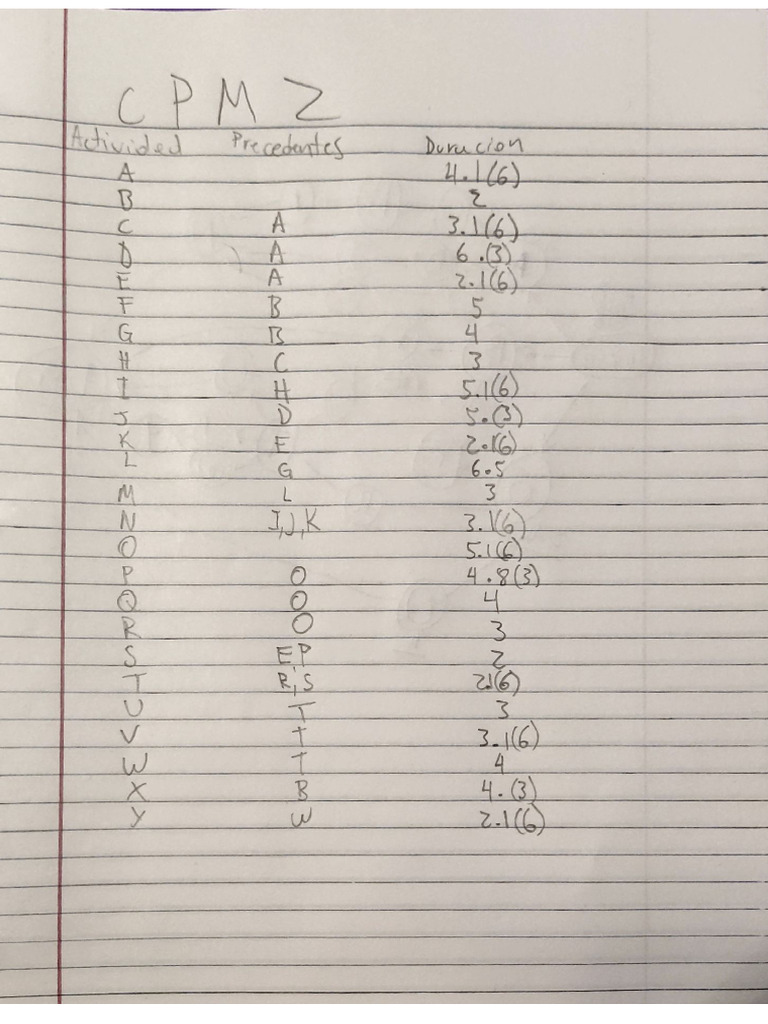 CPM 2
Actividad Precedentes Duracion
A 4.1(6)
B 2
C A 3.1(6)
D A 6.(3)
E A 2.1(6)
F B 5
G B 4
H C 3
I H 5.1(6)
J D 5.(3)
K E 2.1(6)
L G 6.5
M L 3
N I,J,K 3.1(6)
O 5.1(6)
P O 4.8(3)
Q O 4
R O 3
S E,P 2
T R,S 2.1(6)
U T 3
V T 3.1(6)
W T 4
X B 4.(3)
Y W 2.1(6)